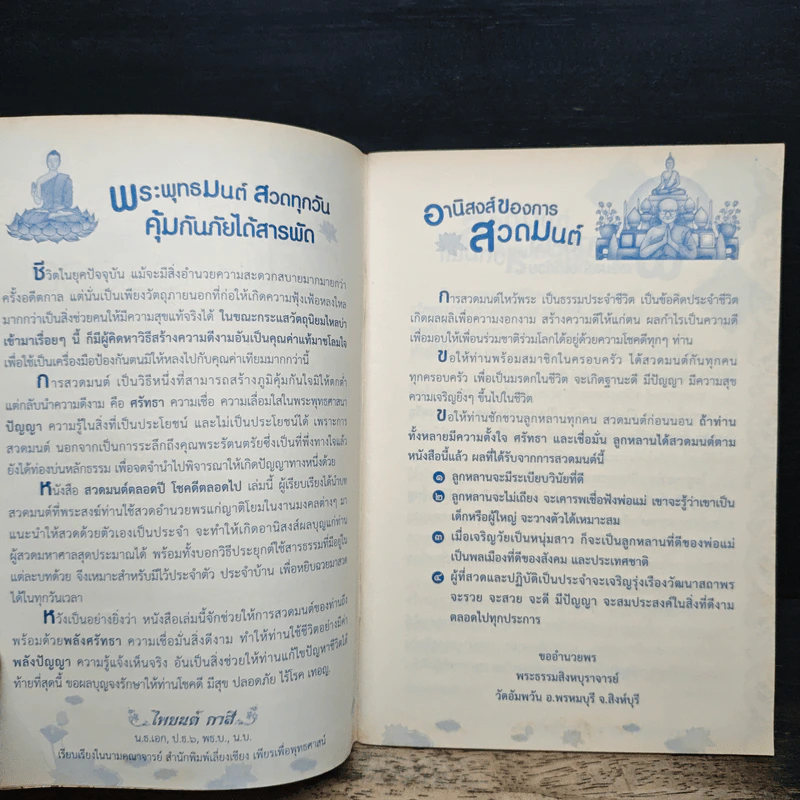 พระพุทธมนต์ สวดทุกวัน
คุ้มกันภัยได้สารพัด
ชีวิตในยุคปัจจุบัน แม้จะมีสิ่งอำนวยความสะดวกสบายมากมายกว่า
ครั้งอดีตกาล แต่นั่นเป็นเพียงวัตถุภายนอกที่ก่อให้เกิดความฟุ้งเฟ้อหลงใหล
มากกว่าเป็นสิ่งช่วยคนให้มีความสุขแท้จริงได้ ในขณะกระแสวัตถุนิยมไหลบ่า
เข้ามาเรื่อยๆ นี้ ก็มีผู้คิดหาวิธีสร้างความดีงามอันเป็นคุณค่าแท้มาชโลมใจ
เพื่อใช้เป็นเครื่องมือป้องกันตนมิให้หลงไปกับคุณค่าเทียมมากกว่านี้
การสวดมนต์ เป็นวิธีหนึ่งที่สามารถสร้างภูมิคุ้มกันใจมิให้ตกต่ำ
แต่กลับนำความดีงาม คือ ศรัทธา ความเชื่อ ความเลื่อมใสในพระพุทธศาสนา
ปัญญา ความรู้ในสิ่งที่เป็นประโยชน์ และไม่เป็นประโยชน์ได้ เพราะการ
สวดมนต์ นอกจากเป็นการระลึกถึงคุณพระรัตนตรัยซึ่งเป็นที่พึ่งทางใจแล้ว
ยังได้ท่องบ่นหลักธรรม เพื่อจดจำนำไปพิจารณาให้เกิดปัญญาทางหนึ่งด้วย
หนังสือ สวดมนต์ตลอดปี โชคดีตลอดไป เล่มนี้ ผู้เรียบเรียงได้นำบท
สวดมนต์ที่พระสงฆ์ท่านใช้สวดอำนวยพรแก่ญาติโยมในงานมงคลต่างๆ มา
แนะนำให้สวดด้วยตัวเองเป็นประจำ จะทำให้เกิดอานิสงส์ผลบุญแก่ท่าน
ผู้สวดมหาศาลสุดประมาณได้ พร้อมทั้งบอกวิธีประยุกต์ใช้สารธรรมที่มีอยู่ใน
แต่ละบทด้วย จึงเหมาะสำหรับมีไว้ประจำตัว ประจำบ้าน เพื่อหยิบฉวยมาสวด
ได้ในทุกวันเวลา
หวังเป็นอย่างยิ่งว่า หนังสือเล่มนี้จักช่วยให้การสวดมนต์ของท่านถึง
พร้อมด้วยพลังศรัทธา ความเชื่อมั่นสิ่งดีงาม ทำให้ท่านใช้ชีวิตอย่างมีค่า
พลังปัญญา ความรู้แจ้งเห็นจริง อันเป็นสิ่งช่วยให้ท่านแก้ไขปัญหาชีวิตได้
ท้ายที่สุดนี้ ขอผลบุญจงรักษาให้ท่านโชคดี มีสุข ปลอดภัย ไร้โรค เทอญ.
ไพยนต์ กาสี
น.ธ.เอก, ป.ธ.๖, พธ.บ., น.บ.
เรียบเรียงในนามคณาจารย์ สำนักพิมพ์เลี่ยงเชียง เพียรเพื่อพุทธศาสน์
อานิสงส์ของการ
สวดมนต์
การสวดมนต์ไหว้พระ เป็นธรรมประจำชีวิต เป็นข้อคิดประจำชีวิต
เกิดผลผลิเพื่อความงอกงาม สร้างความดีให้แก่ตน ผลกำไรเป็นความดี
เพื่อมอบให้เพื่อนร่วมชาติร่วมโลกได้อยู่ด้วยความโชคดีทุกๆ ท่าน
ขอให้ท่านพร้อมสมาชิกในครอบครัว ได้สวดมนต์กันทุกคน
ทุกครอบครัว เพื่อเป็นมรดกในชีวิต จะเกิดฐานะดี มีปัญญา มีความสุข
ความเจริญยิ่งๆ ขึ้นไปในชีวิต
ขอให้ท่านชักชวนลูกหลานทุกคน สวดมนต์ก่อนนอน ถ้าท่าน
ทั้งหลายมีความตั้งใจ ศรัทธา และเชื่อมั่น ลูกหลานได้สวดมนต์ตาม
หนังสือนี้แล้ว ผลที่ได้รับจากการสวดมนต์นี้
๑ ลูกหลานจะมีระเบียบวินัยที่ดี
๒ ลูกหลานจะไม่เถียง จะเคารพเชื่อฟังพ่อแม่ เขาจะรู้ว่าเขาเป็น
เด็กหรือผู้ใหญ่ จะวางตัวได้เหมาะสม
๓ เมื่อเจริญวัยเป็นหนุ่มสาว ก็จะเป็นลูกหลานที่ดีของพ่อแม่
เป็นพลเมืองที่ดีของสังคม และประเทศชาติ
๔ ผู้ที่สวดและปฏิบัติเป็นประจำจะเจริญรุ่งเรืองวัฒนาสถาพร
จะรวย จะสวย จะดี มีปัญญา จะสมประสงค์ในสิ่งที่ดีงาม
ตลอดไปทุกประการ
ขออำนวยพร
พระธรรมสิงหบุราจารย์
วัดอัมพวัน อ.พรหมบุรี จ.สิงห์บุรี